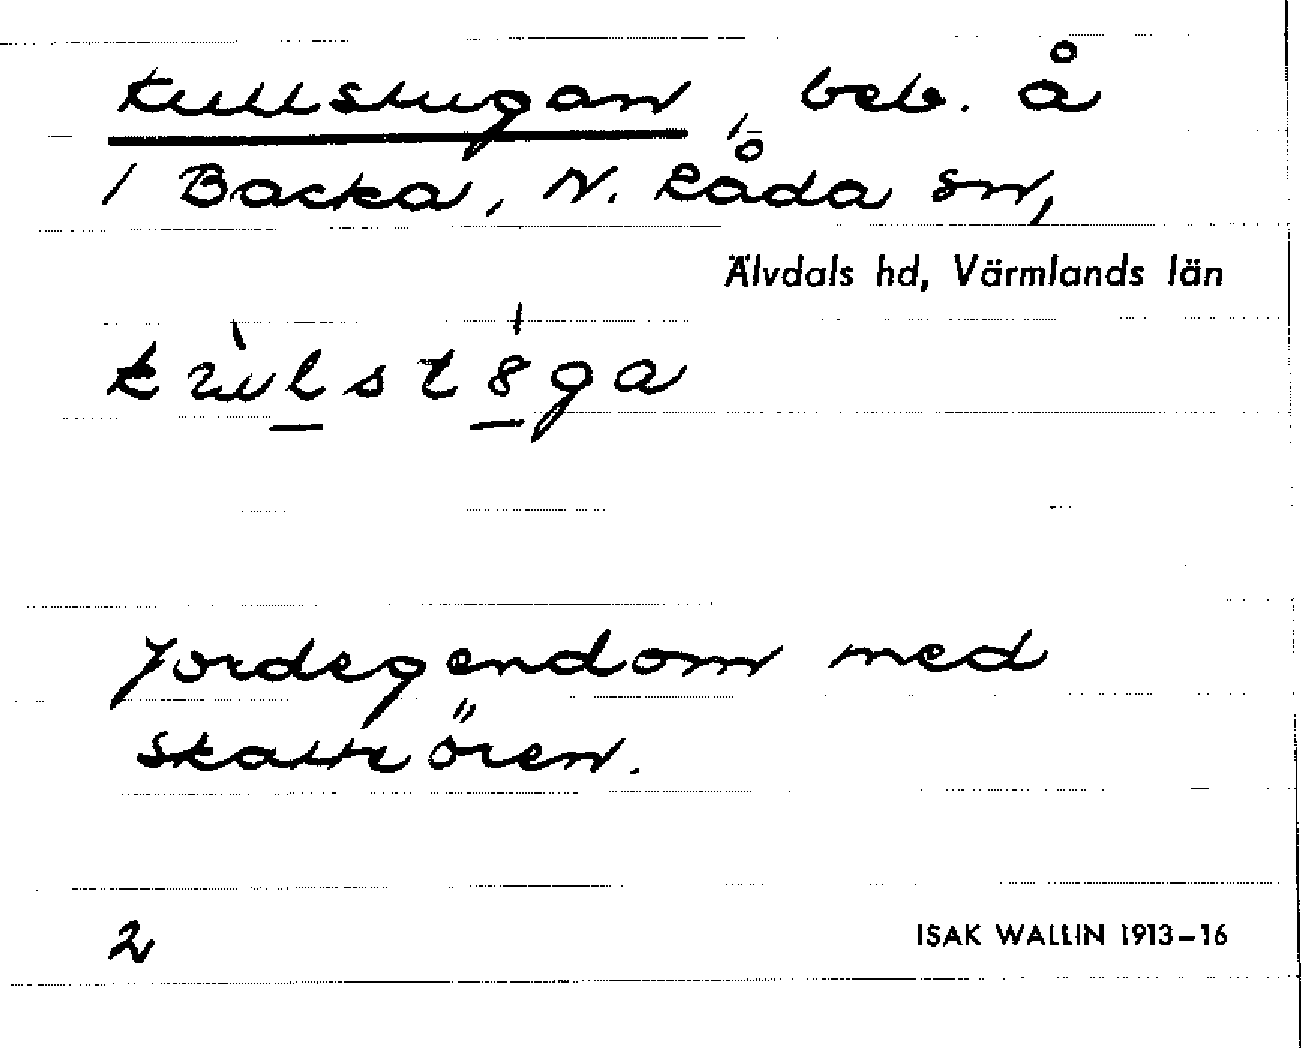 Kullstugan, beb. å
1 Backa, N. Råda sn,
Älvdals hd, Värmlands län
Jordegendom med
skatteören.
2
ISAK WALLIN 1913–16